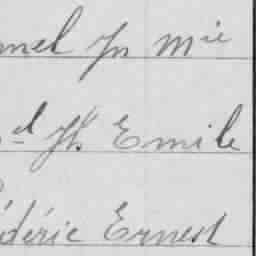 nel Jn Mie
d Jh Emile
édéric Ernest